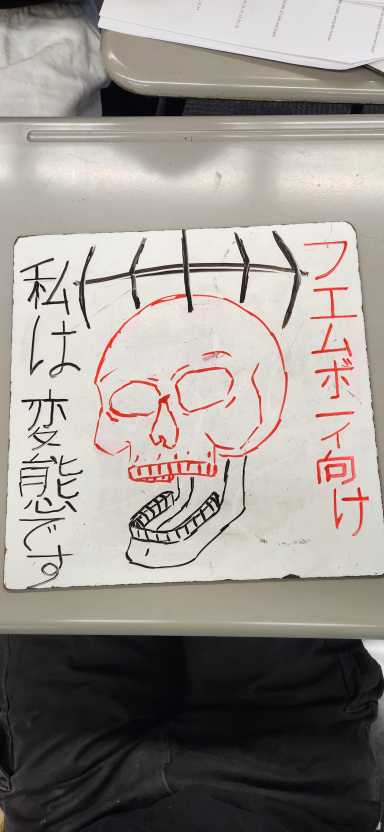 フエムボーイ向け
私は変態です